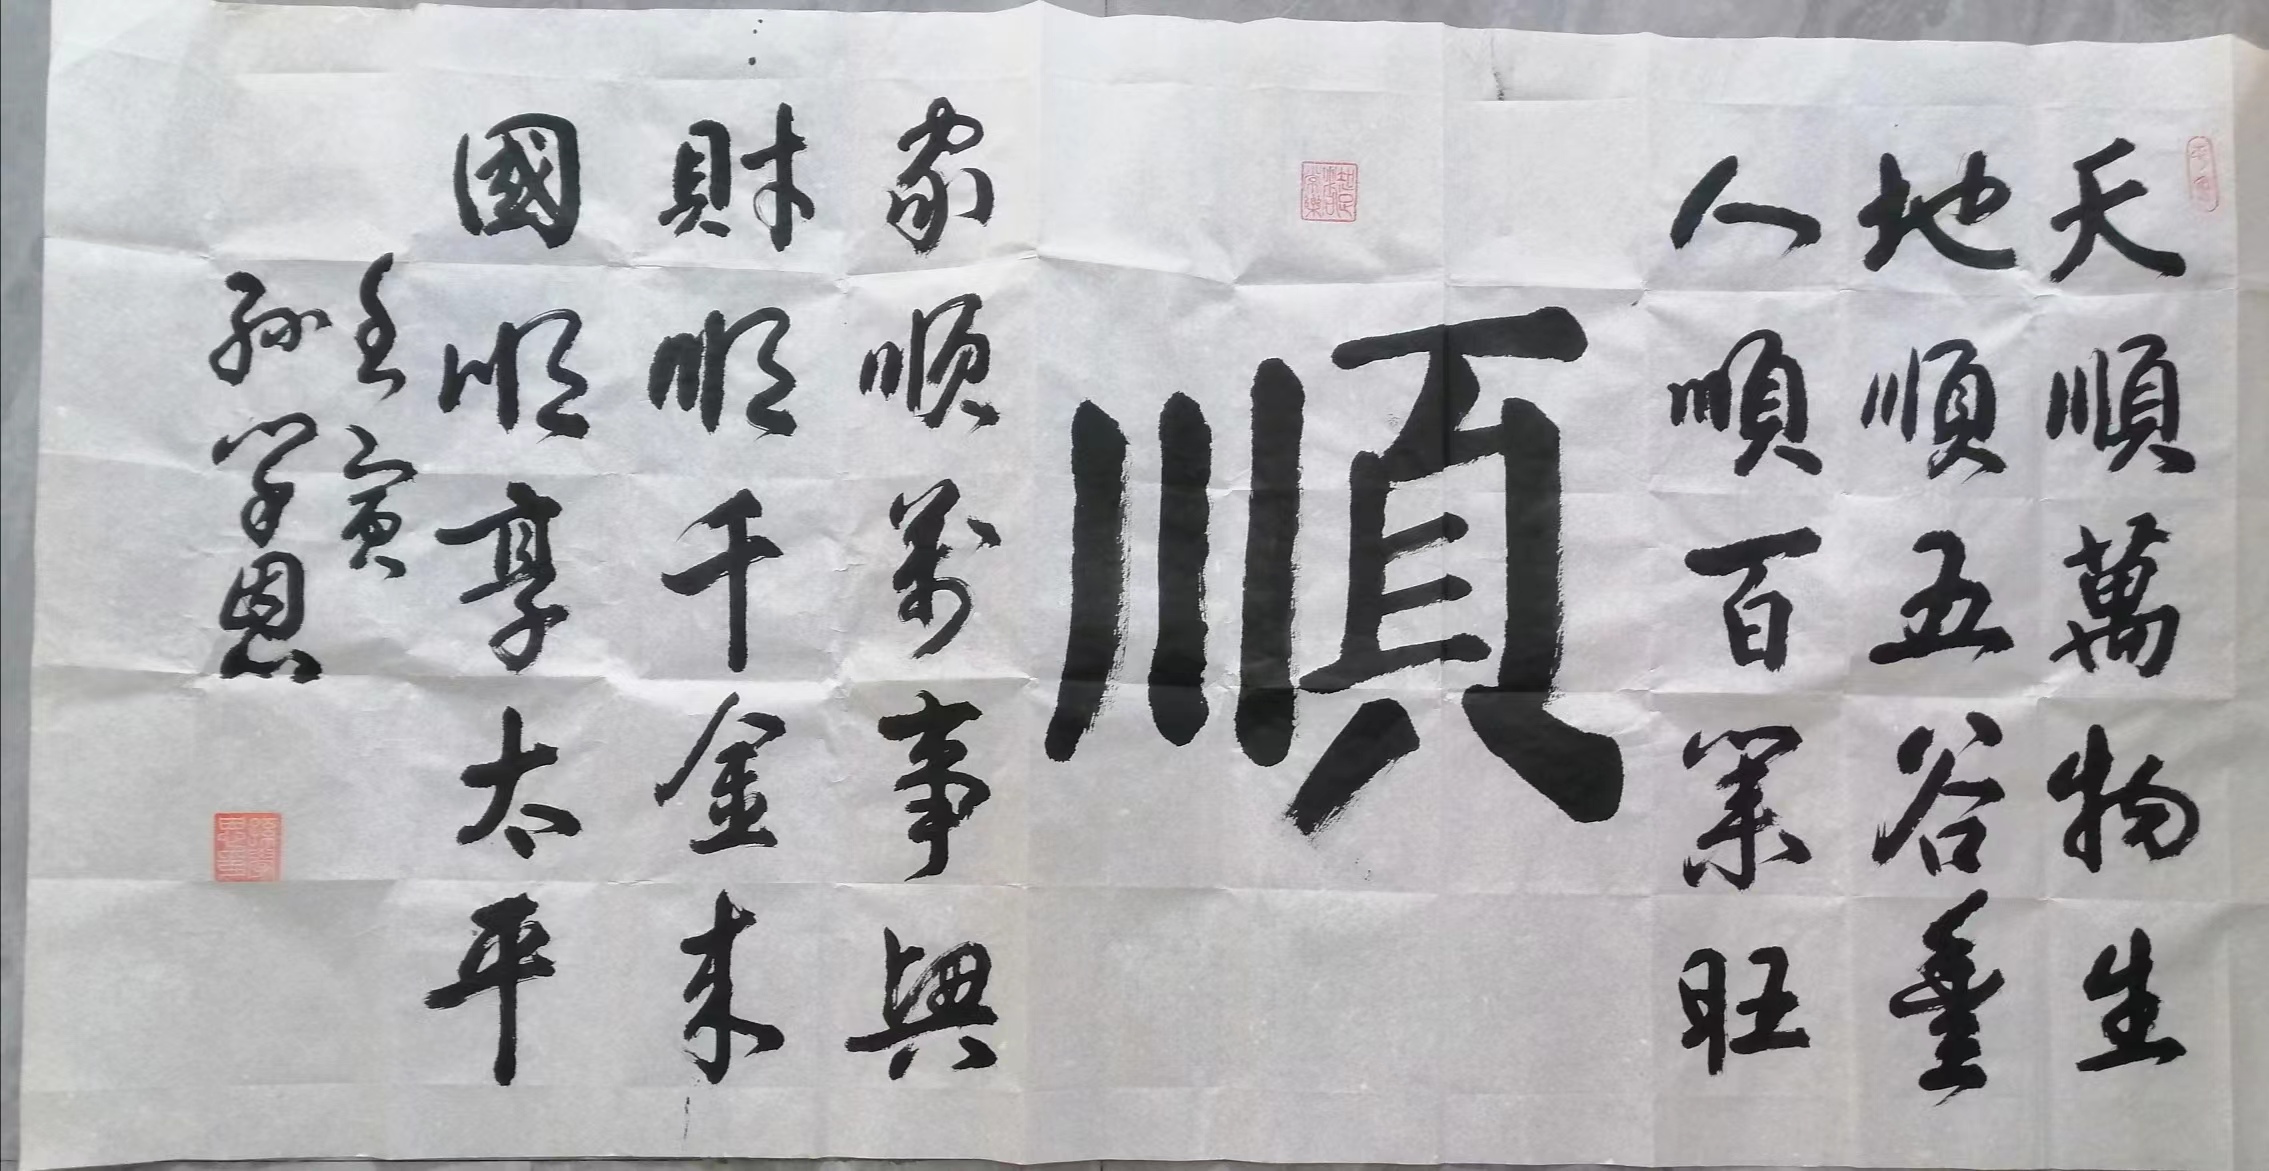 天順萬物生
地順五谷豐
人順百業旺
順
家順萬事興
財順千金來
國順享太平
壬寅
孫学恩